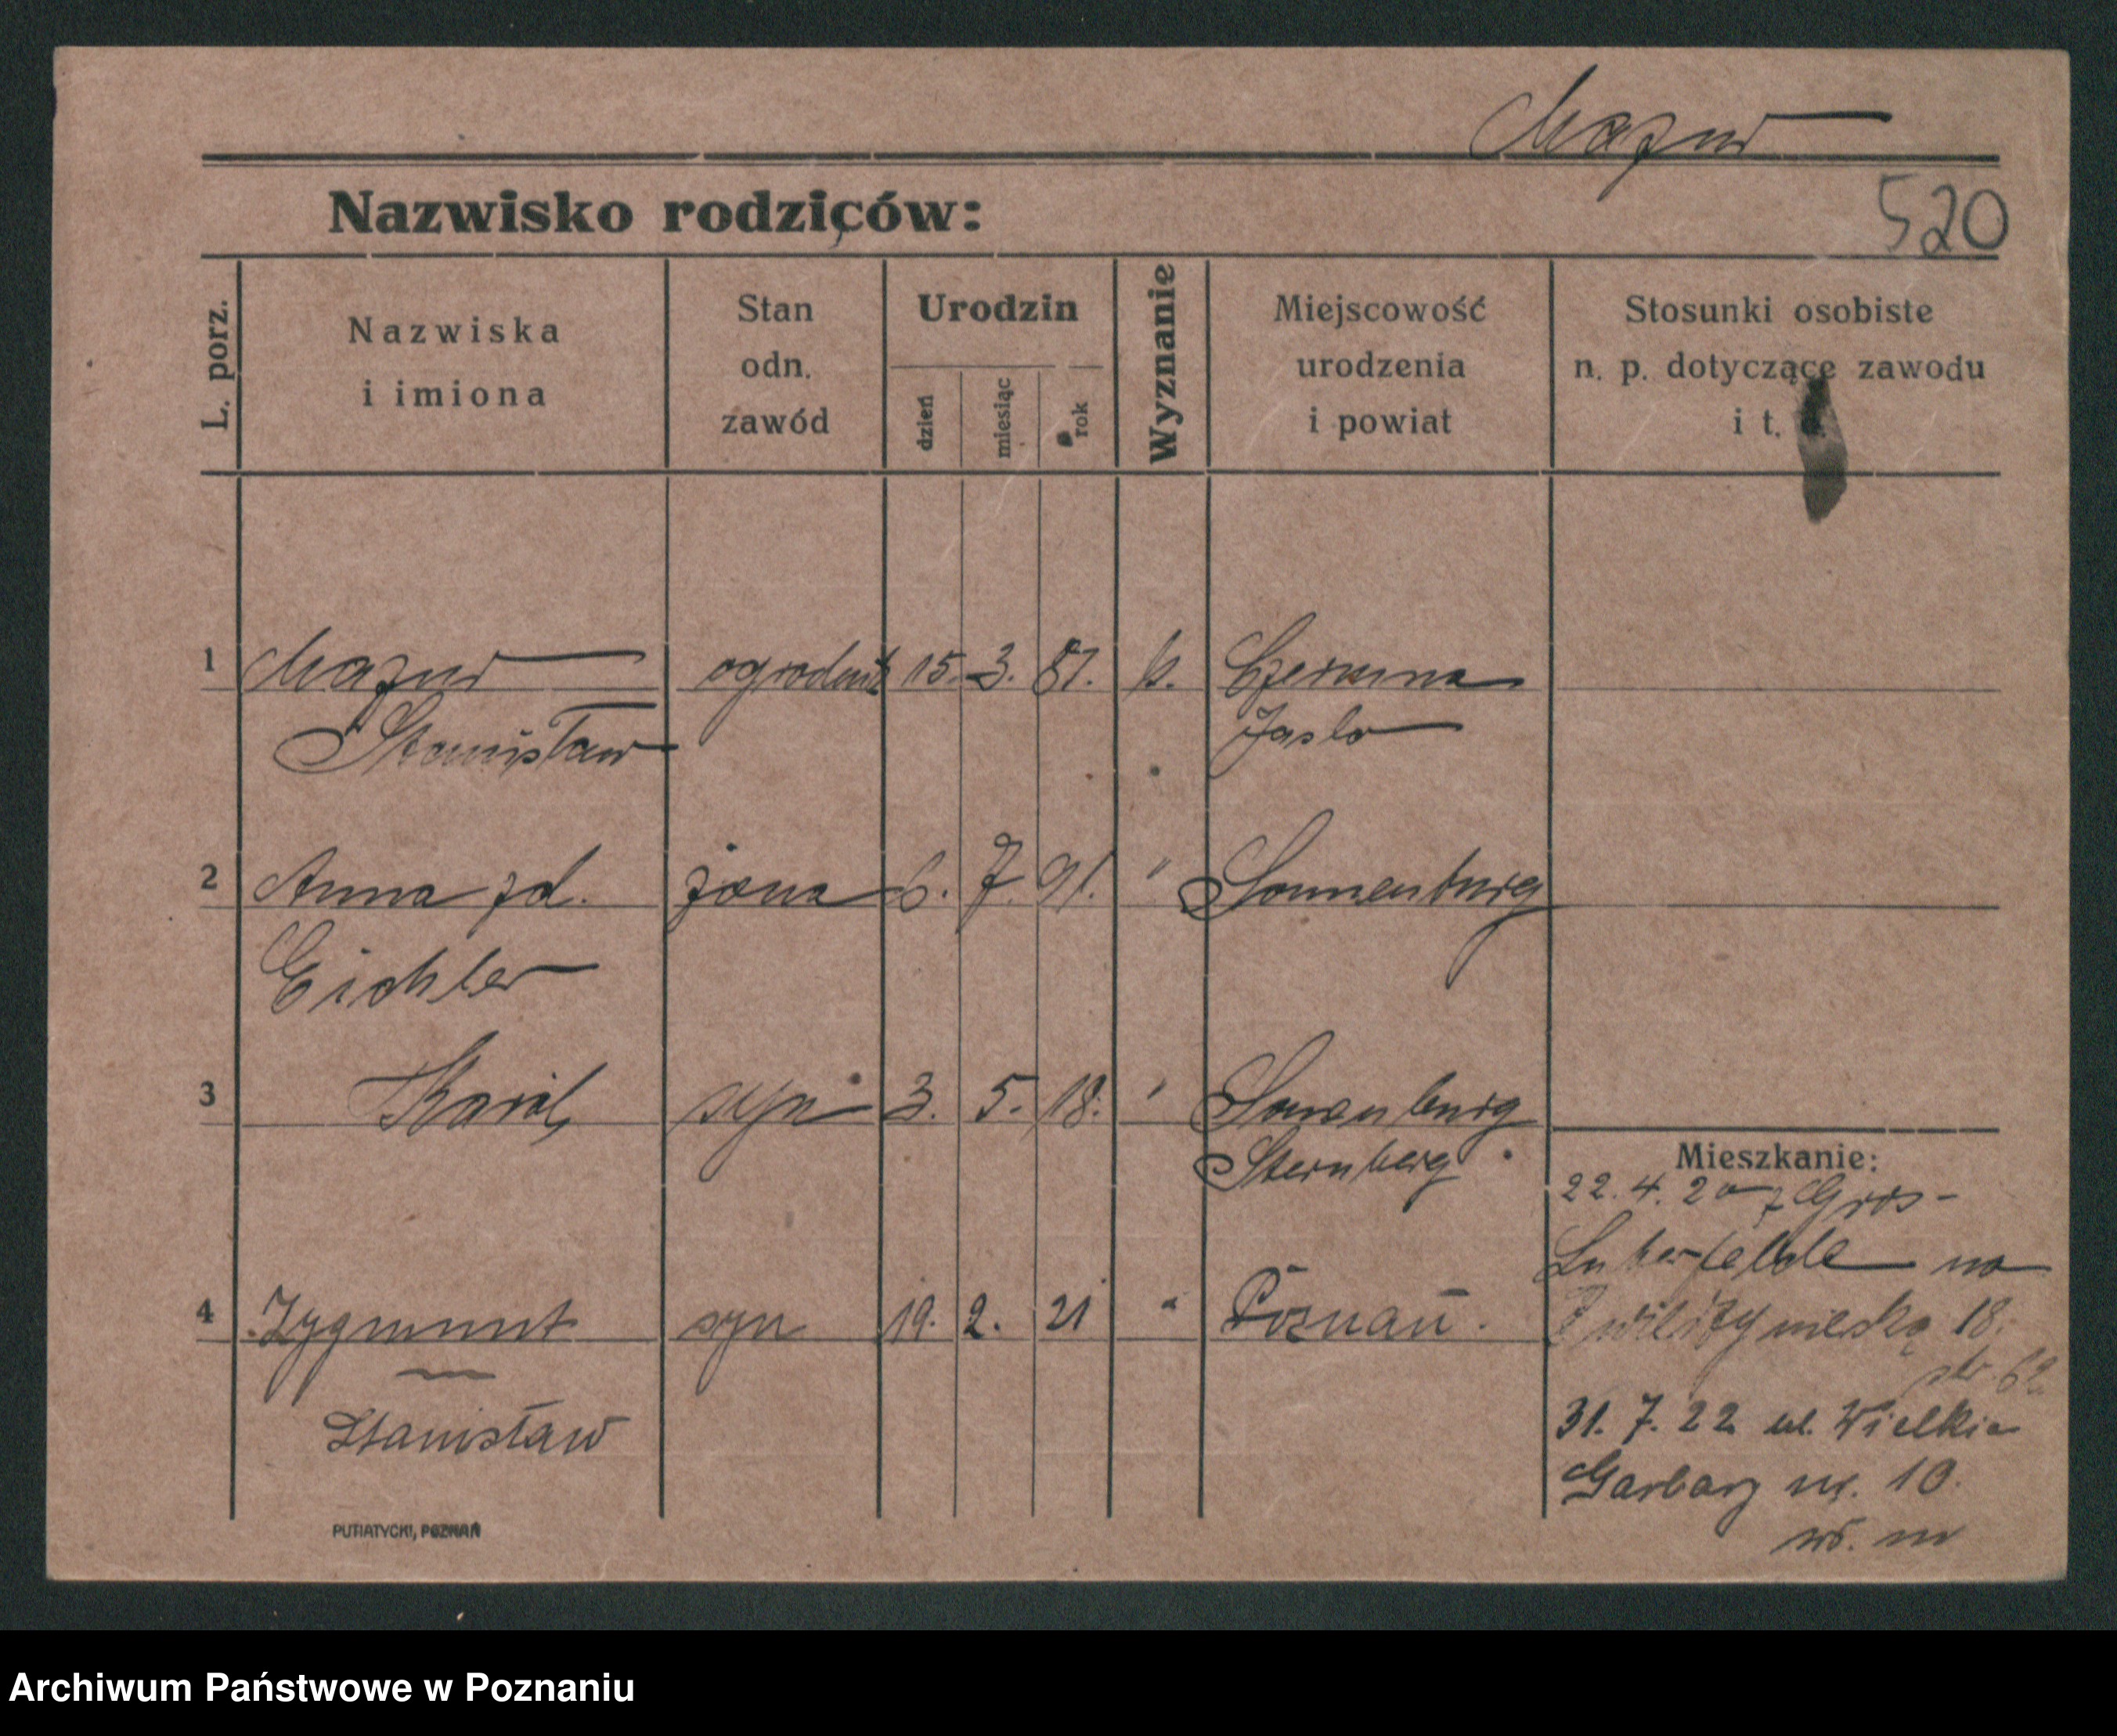 Mazur
520
Nazwisko rodziców:
L. porz.
Nazwiska
i imiona
Stan
odn.
zawód
Urodzin
dzień
miesiąc
rok
Wyznanie
Miejscowość
urodzenia
i powiat
Stosunki osobiste
n. p. dotyczące zawodu
i t. d.
1 Mazur ogrodnik 15. 3. 87. k. Czermna
Stanisław Jaslo
2 Anna zd. żona 6. 7. 91. " Sonnenburg
Eichler
3 Karol, syn 3. 5. 18. " Sonnenburg
Sternberg
Mieszkanie:
22. 4. 20 z Gros-
na
4 Zygmunt syn 19. 2. 21 " Poznań.
18.
Stanisław
31. 7. 22 ul. Wielkie
Garbary nr. 10.
PUTIATYCKI, POZNAŃ
Archiwum Państwowe w Poznaniu